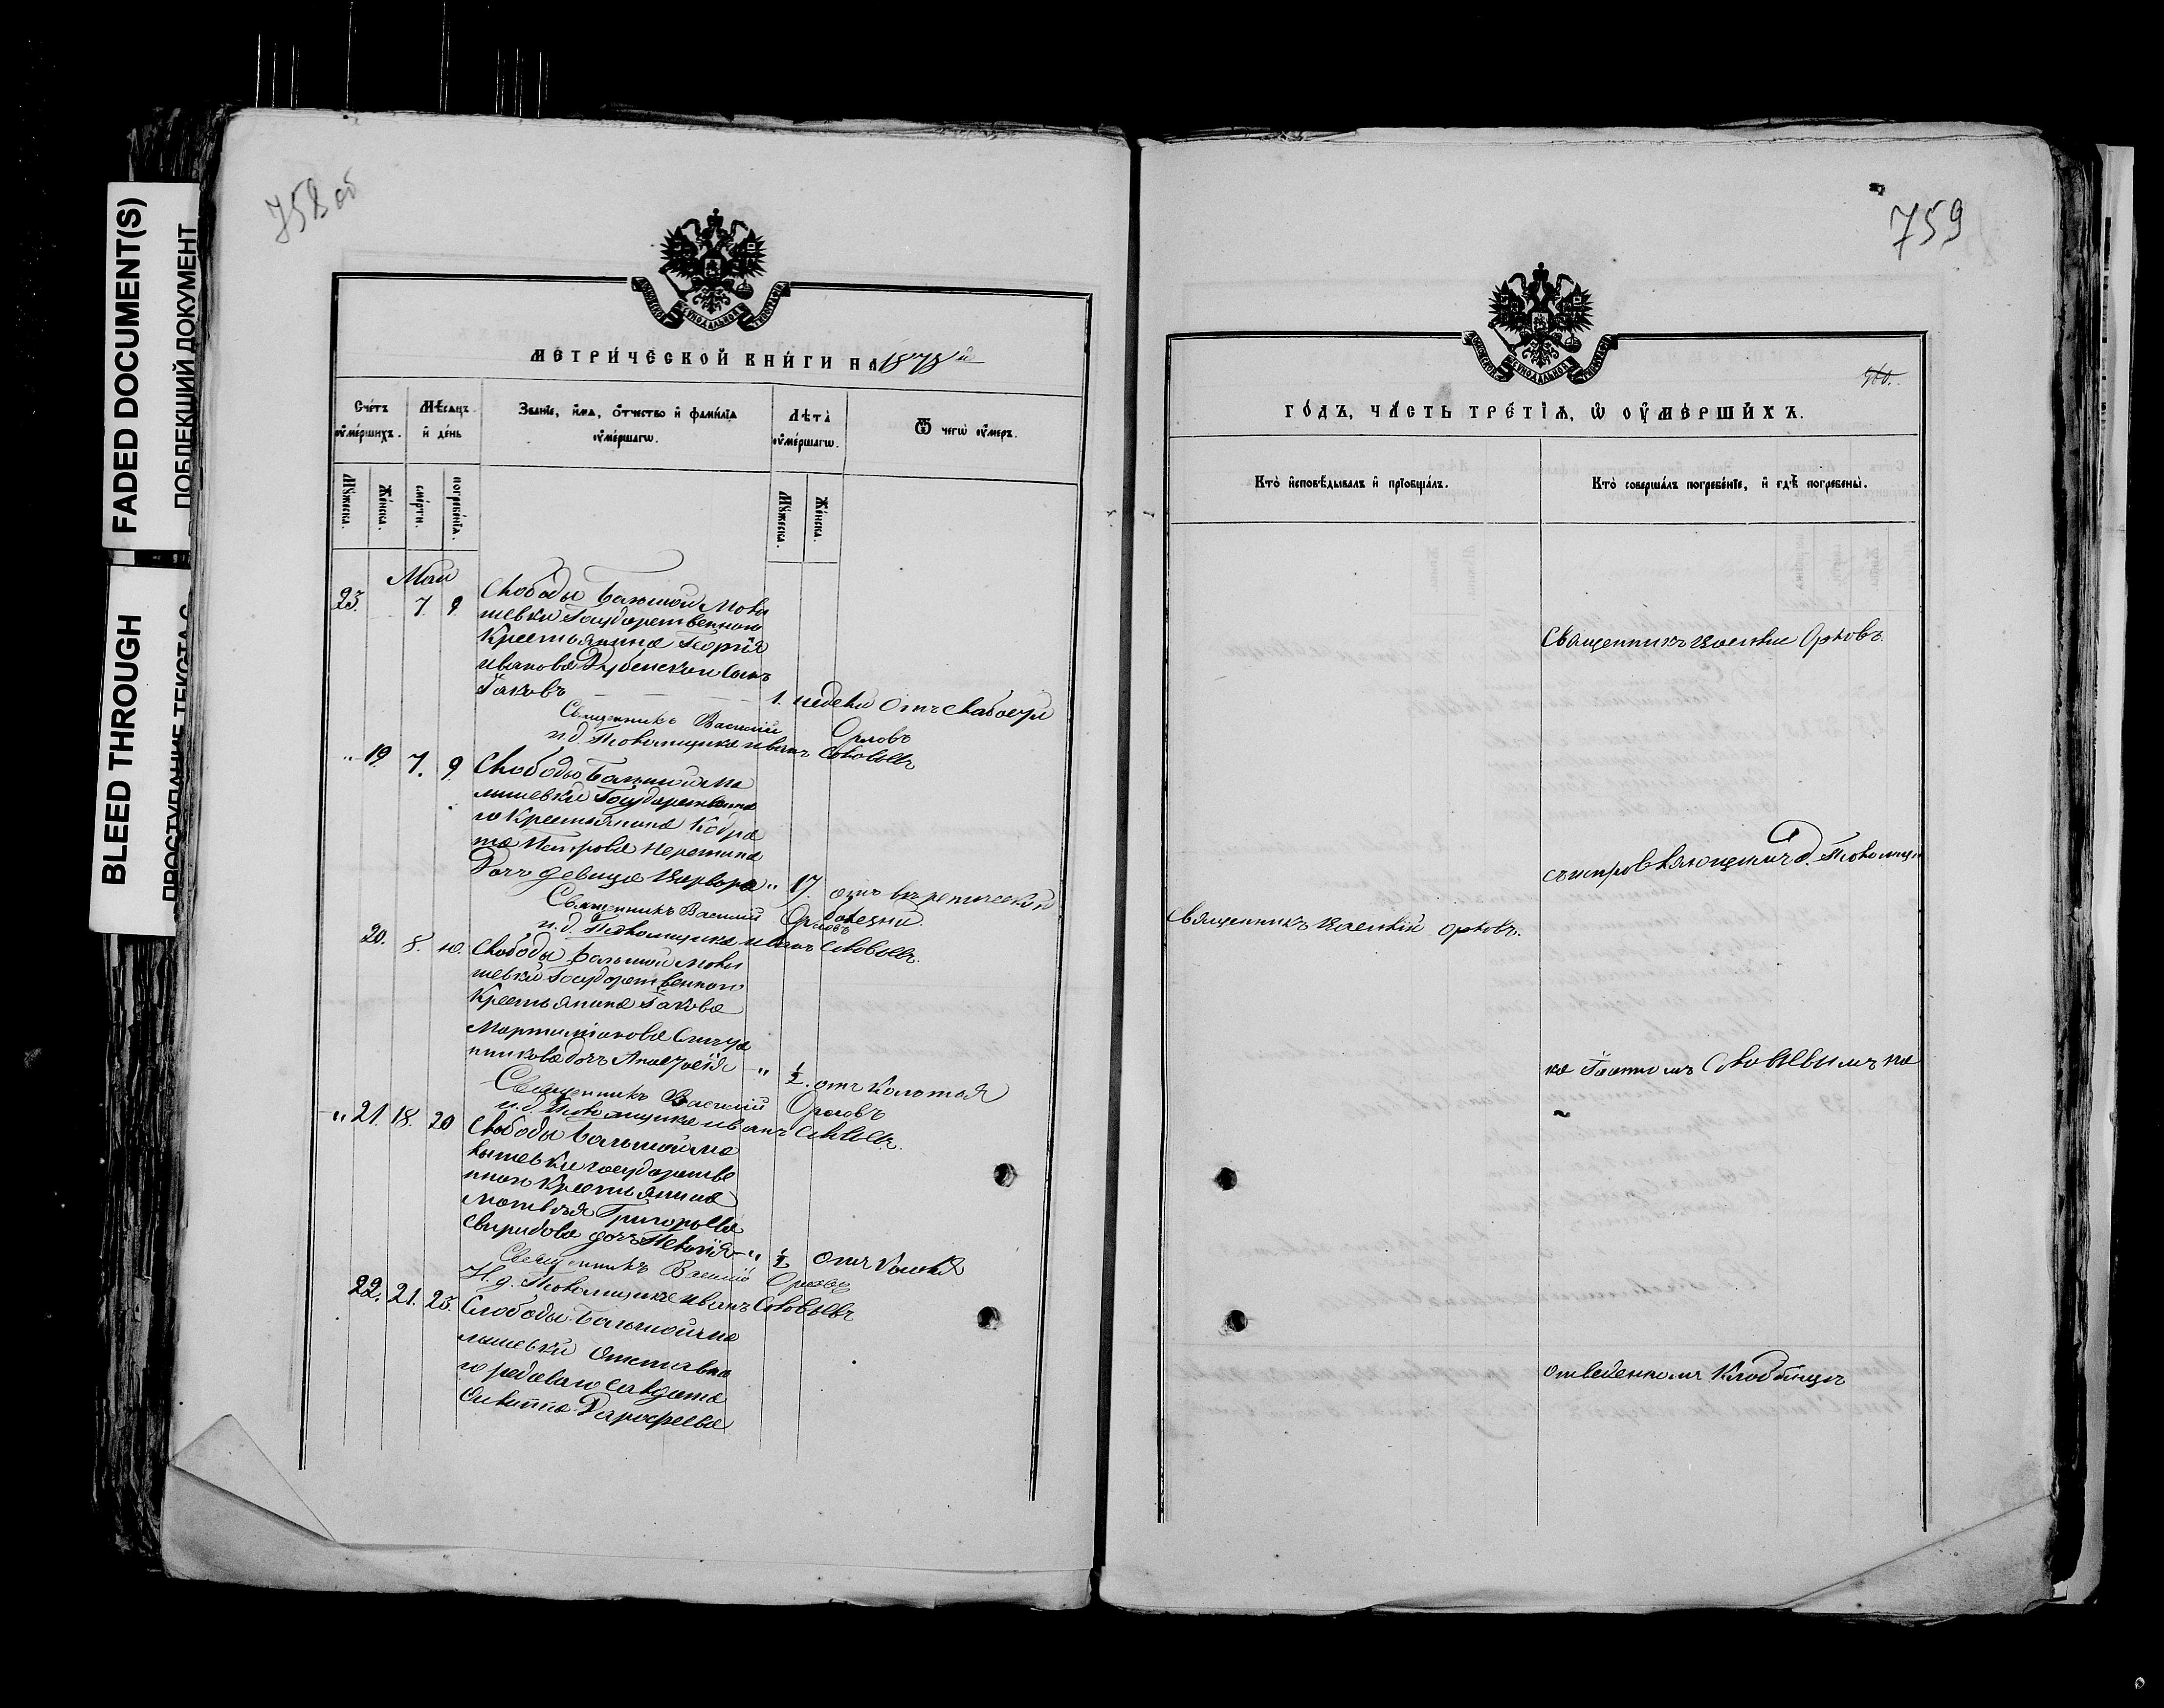 FADED DOCUMENT(S)
ПОБЛЕКШИЙ ДОКУМЕНТ
BLEED THROUGH
ПРОСТУПАНИЕ ТЕКСТА С
758 об
МЕТРИЧЕСКОЙ КНИГИ НА 1878й
Счетъ умершихъ.
Мѣсяцъ и день
Званіе, имя, отчество и фамилія умершаго.
Лѣта умершаго.
Ѿ чего умеръ.
Мужеска.
Женска.
смерти.
погребенія.
Мужеска.
Женска.
Маи
23. 7. 9 Слободы Балшой Малы
шевки Государственного
Крестьянина Георгія
Иванова Дубенскои Сынъ
Іаковъ — — — 1. недели Отъ слабости
Священникъ Василий Орловъ
и.д. Псаломщика Иванъ Соловьевъ
" 19. 7. 9. Слободы Балшой Ма
лышевки Государственна
го Крестьянина Кодра
та Петрова
Дочь девица Варвара " 17. отъ
болезни.
Священникъ Василий Орловъ
и.д. Псаломщика Иванъ Соловьевъ.
20. 8. 10. Слободы Балшой Малы
шевки Государственного
Крестьянина Іакова
Мартиміанова
дочь Анастасія " ½. отъ Колотья
Священникъ Василий Орловъ
и.д. Псаломщика Иванъ Соловьевъ.
" 21. 18. 20 Слободы Балшой Ма
лышевки государстве
нного Крестьянина
Матвея Григорьева
Свиридова дочь Пелагія " ½ Отъ Кашля
Священникъ Василій Орловъ
И.д. Псаломщика Иванъ Соловьевъ
22. 21. 23. Слободы Балшой Ма
лышевки Отставно
го рядоваго солдата
Филиппа Дарофеева
759
760.
ГОДЪ, ЧАСТЬ ТРЕТІЯ, Ѡ УМЕРШИХЪ.
Кто исповѣдывалъ и пріобщалъ.
Кто совершалъ погребеніе, и гдѣ погребены.
Священникъ Василие Орловъ.
съ исправляющимъ д. Псаломщи
Священникъ Василий Орловъ.
ка Іоанномъ Соловьевымъ на
отведенномъ Кладбище